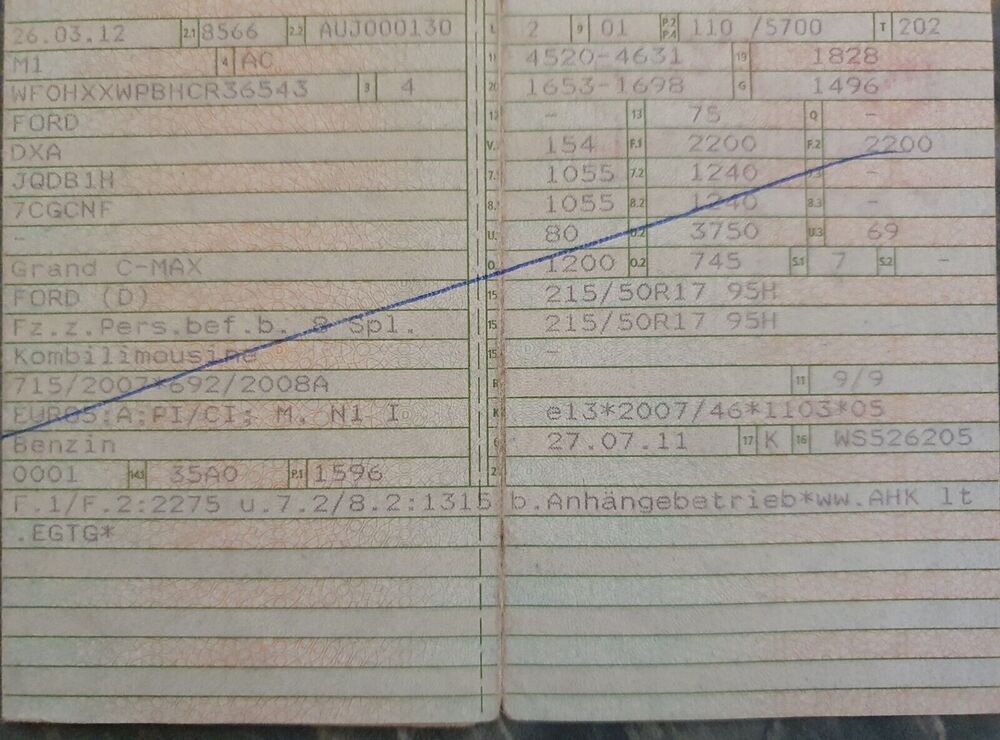 26.03.12 2.1 8566 2.2 AUJ000130 L 2 9 01 P.2 P.4 110 /5700 T 202
M1 4 AC 18 4520-4631 19 1828
WF0HXXWPBHCR36543 3 4 20 1653-1698 G 1496
FORD 12 - 13 75 Q -
DXA V. 154 F.1 2200 F.2 2200
JQDB1H 7. 1055 7.2 1240 7.3 -
7CGCNF 8. 1055 8.2 1240 8.3 -
- U. 80 U.2 3750 U.3 69
Grand C-MAX O. 1200 O.2 745 S.1 7 S.2 -
FORD (D) 15 215/50R17 95H
Fz.z.Pers.bef.b. 8 Spl. 15 215/50R17 95H
Kombilimousine 15 -
715/2007*692/2008A R 11 9/9
EURO5;A;PI/CI; M, N1 I K e13*2007/46*1103*05
Benzin 6 27.07.11 17 K 16 WS526205
0001 14.1 35A0 P.1 1596 2
F.1/F.2:2275 u.7.2/8.2:1315 b.Anhängebetrieb*ww.AHK lt
.EGTG*